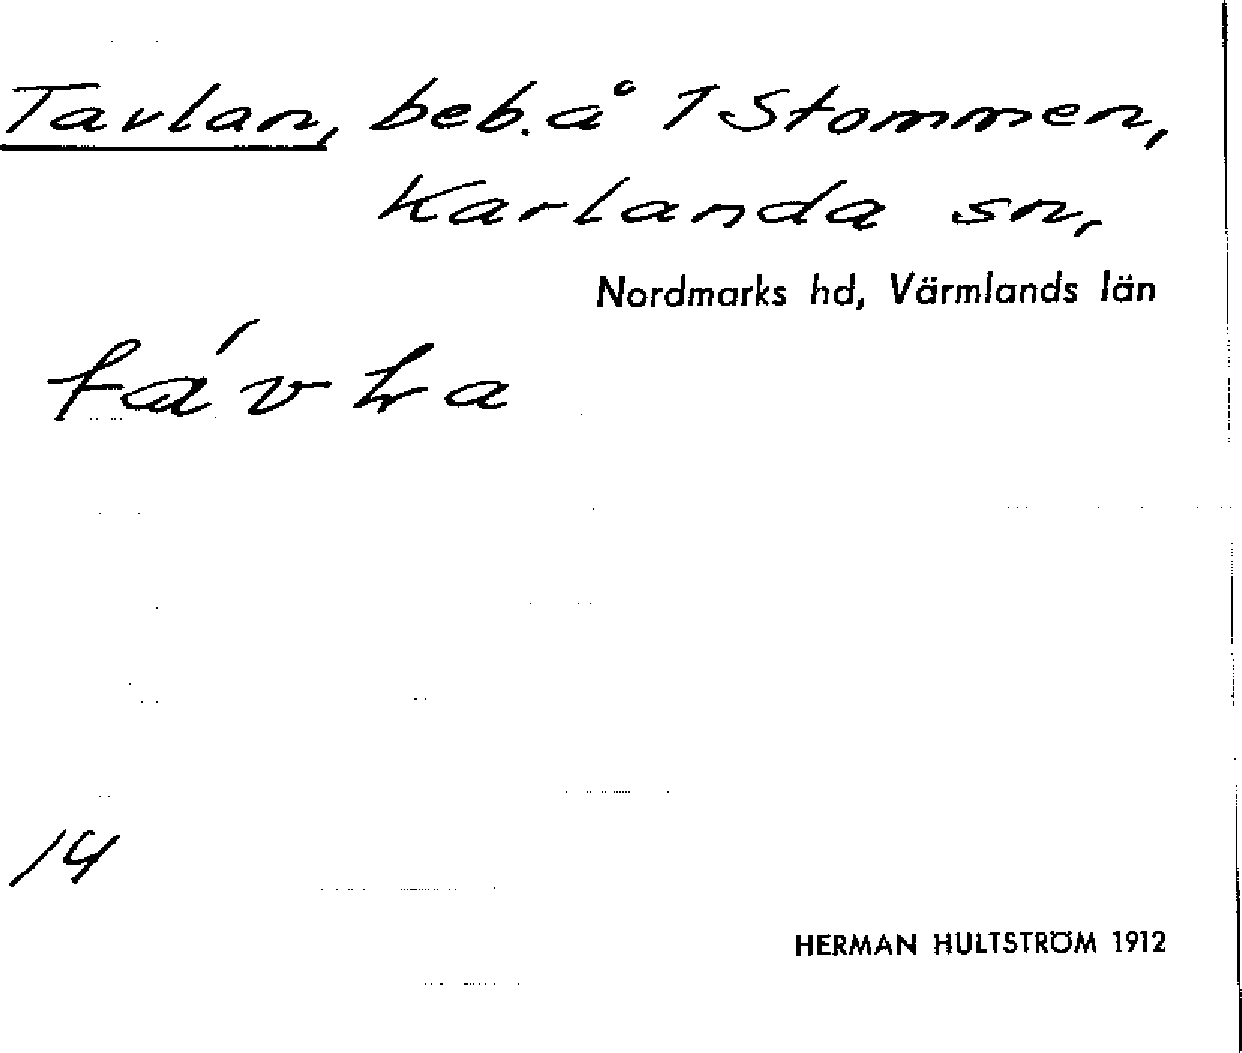 Tavlan, beb. å 1 Stommen,
Karlanda sn,
Nordmarks hd, Värmlands län
14
HERMAN HULTSTRÖM 1912